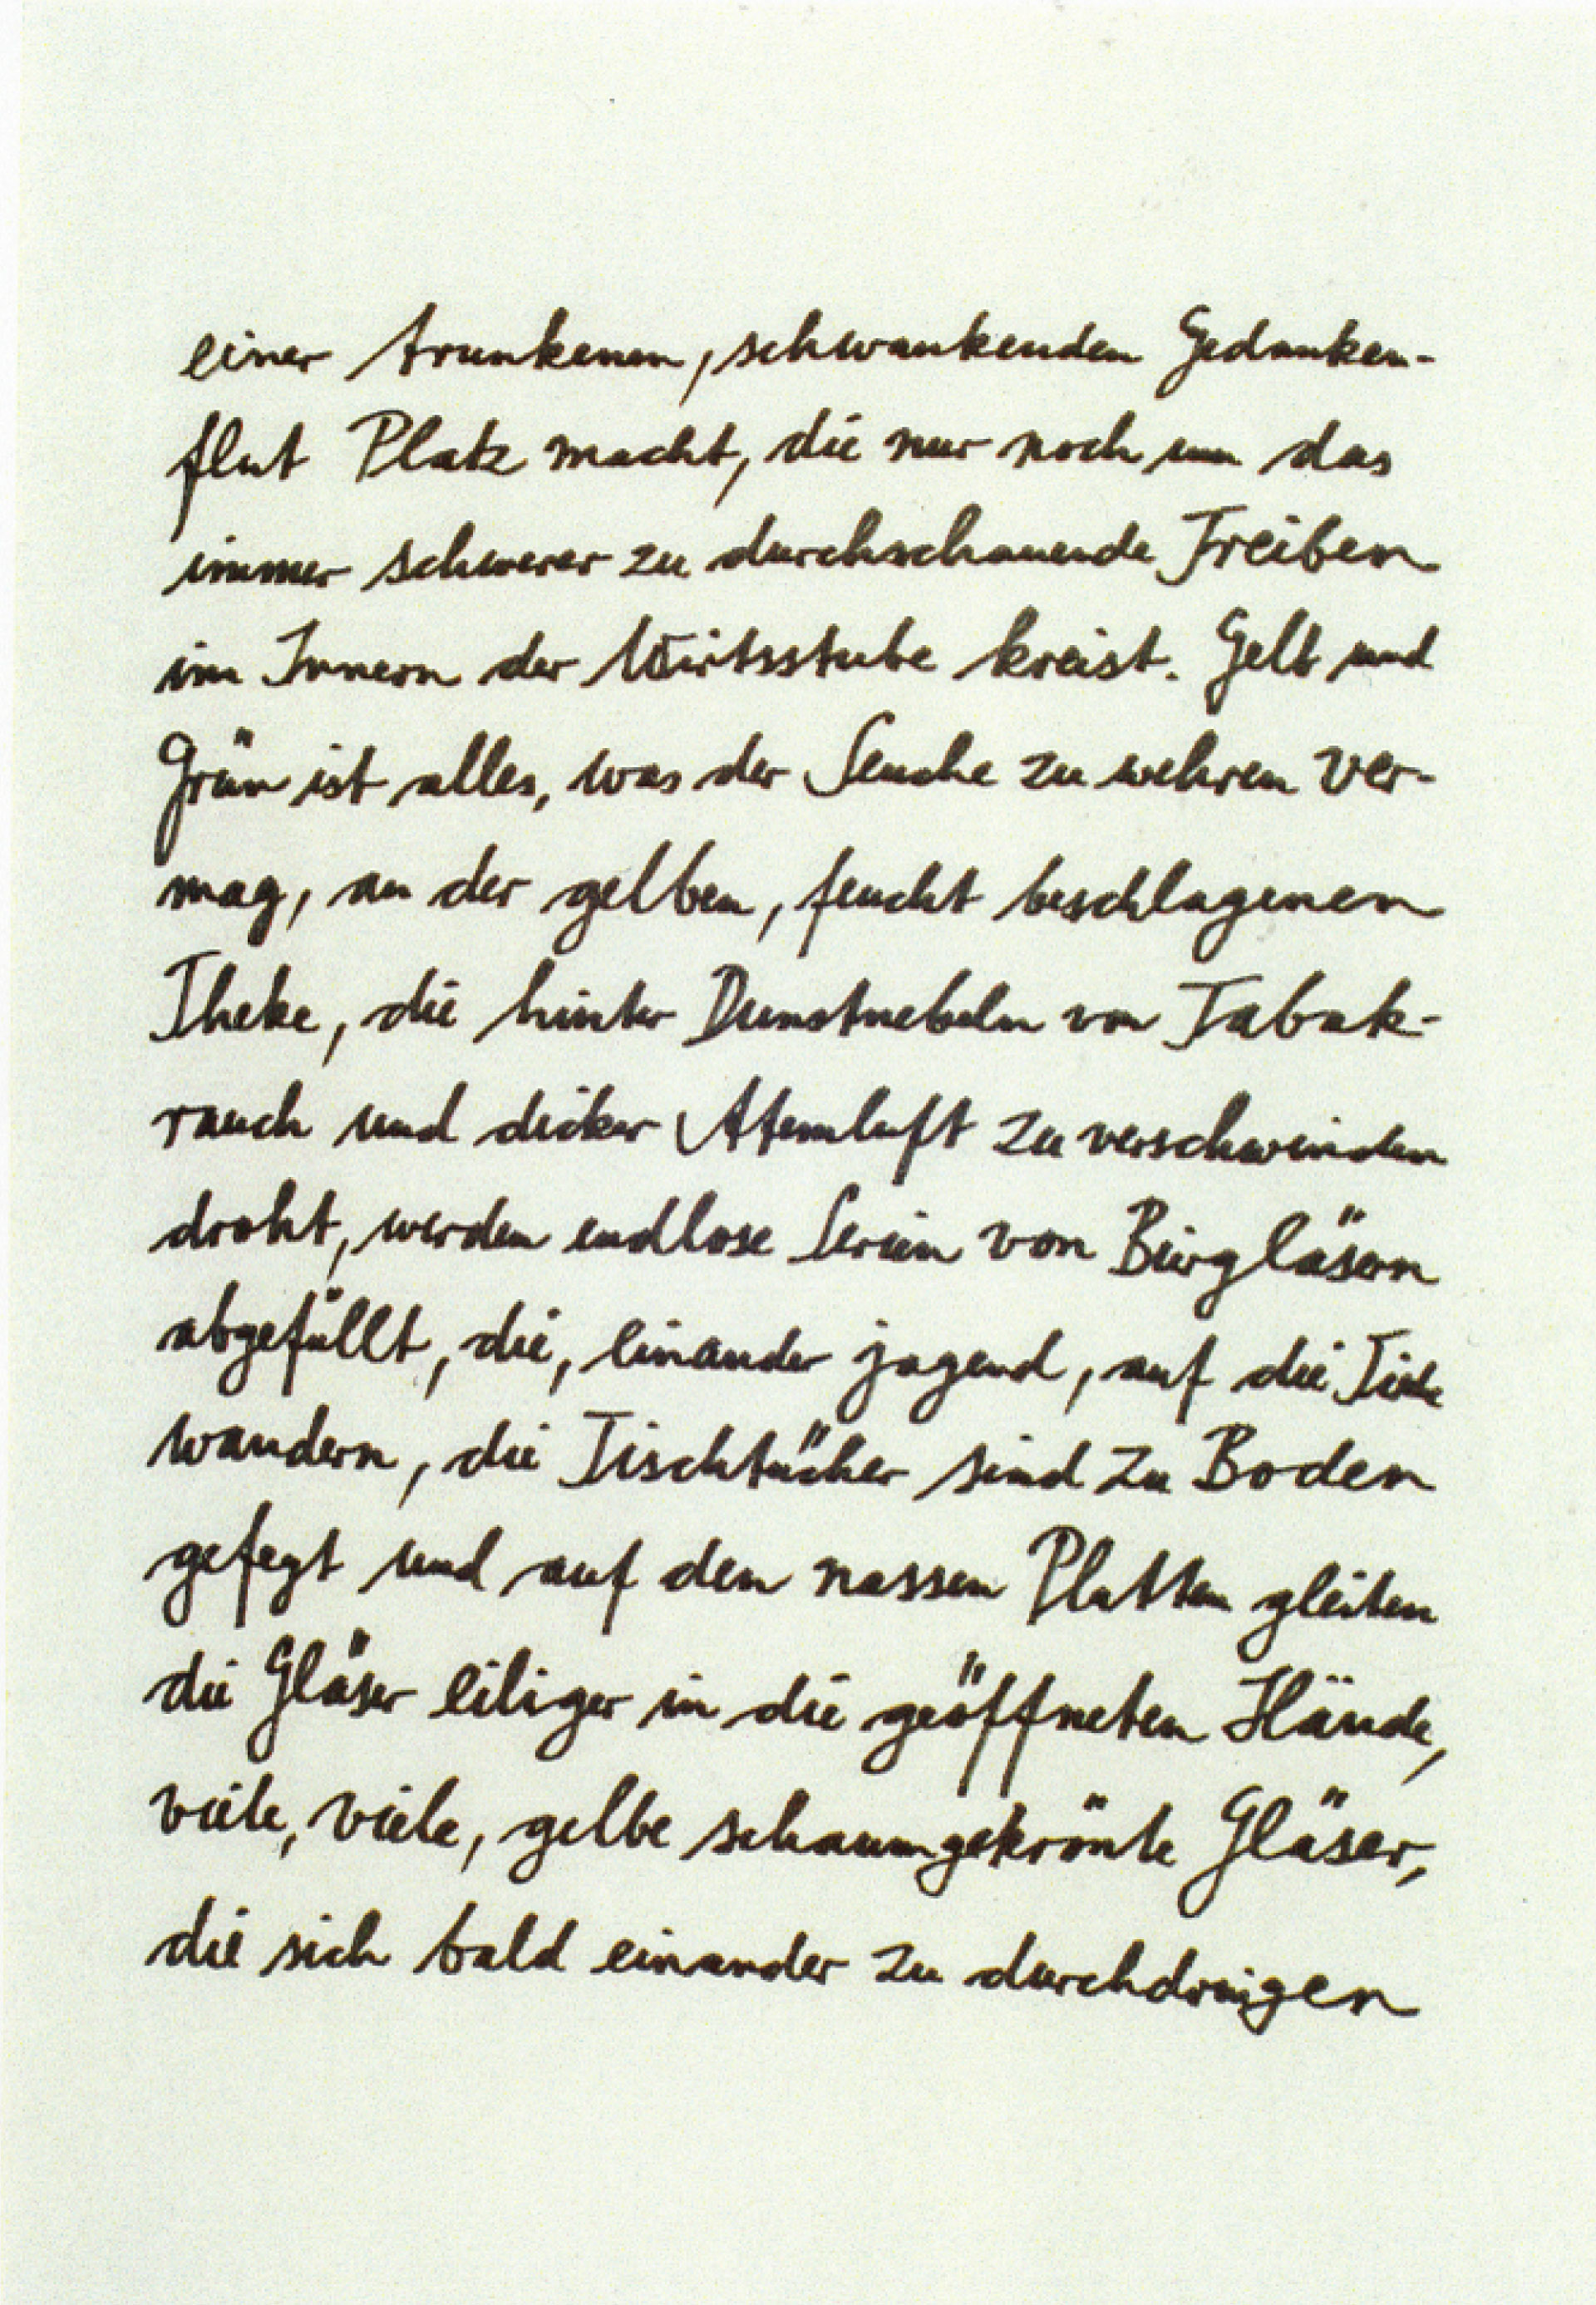 einer trunkenen, schwankenden Gedanken-
flut Platz macht, die nur noch um das
immer schwerer zu durchschauende Treiben
im Innern der Wirtsstube kreist. Gelb und
Grün ist alles, was der Seuche zu wehren ver-
mag, an der gelben, feucht beschlagenen
Theke, die hinter Dunstnebeln von Tabak-
rauch und dicker Atemluft zu verschwinden
droht, werden endlose Serien von Biergläsern
abgefüllt, die, einander jagend, auf die Tische
wandern, die Tischtücher sind zu Boden
gefegt und auf den nassen Platten gleiten
die Gläser eiliger in die geöffneten Hände,
viele, viele, gelbe schaumgekrönte Gläser,
die sich bald einander zu durchdringen